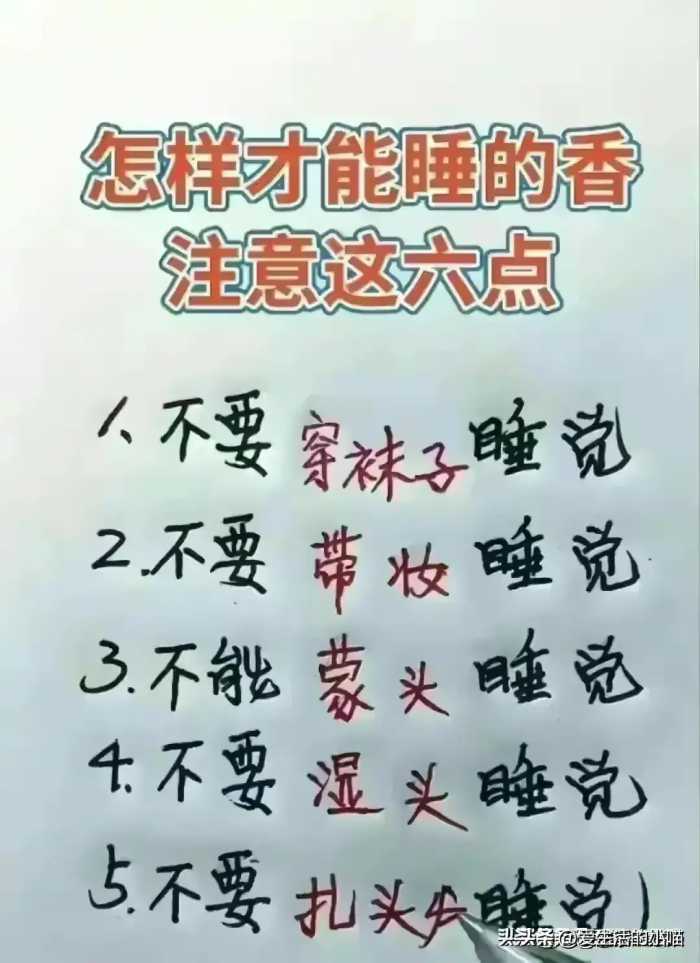 怎样才能睡的香
注意这六点
1、不要穿袜子睡觉
2.不要带妆睡觉
3.不能蒙头睡觉
4.不要湿头睡觉
5.不要扎头睡觉
头条@爱生活的